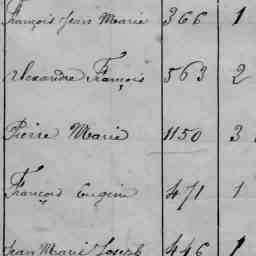 François Jean Marie 366 1
Alexandre François 563 2
Pierre Marie 1150 3
François Eugène 471 1
Jean Marie Joseph 446 1